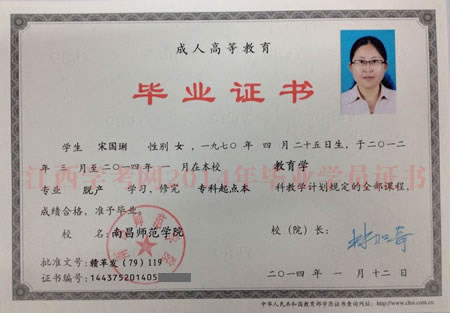 成人高等教育
毕业证书
学生 宋国琍 性别 女，一九七〇年 四 月二十五日生，于二〇一二
年 三 月至二〇一四年 一 月在本校 教育学
专业 脱产 学习，修完 专科起点本 科教学计划规定的全部课程，
成绩合格，准予毕业。
校 名： 南昌师范学院 校（院）长：
批准文号：赣革发（79）119
证书编号：144375201405
二〇一四年 一 月十二日
中华人民共和国教育部学历证书查询网址：http://www.chsi.com.cn
江西学考网2014年毕业学员证书